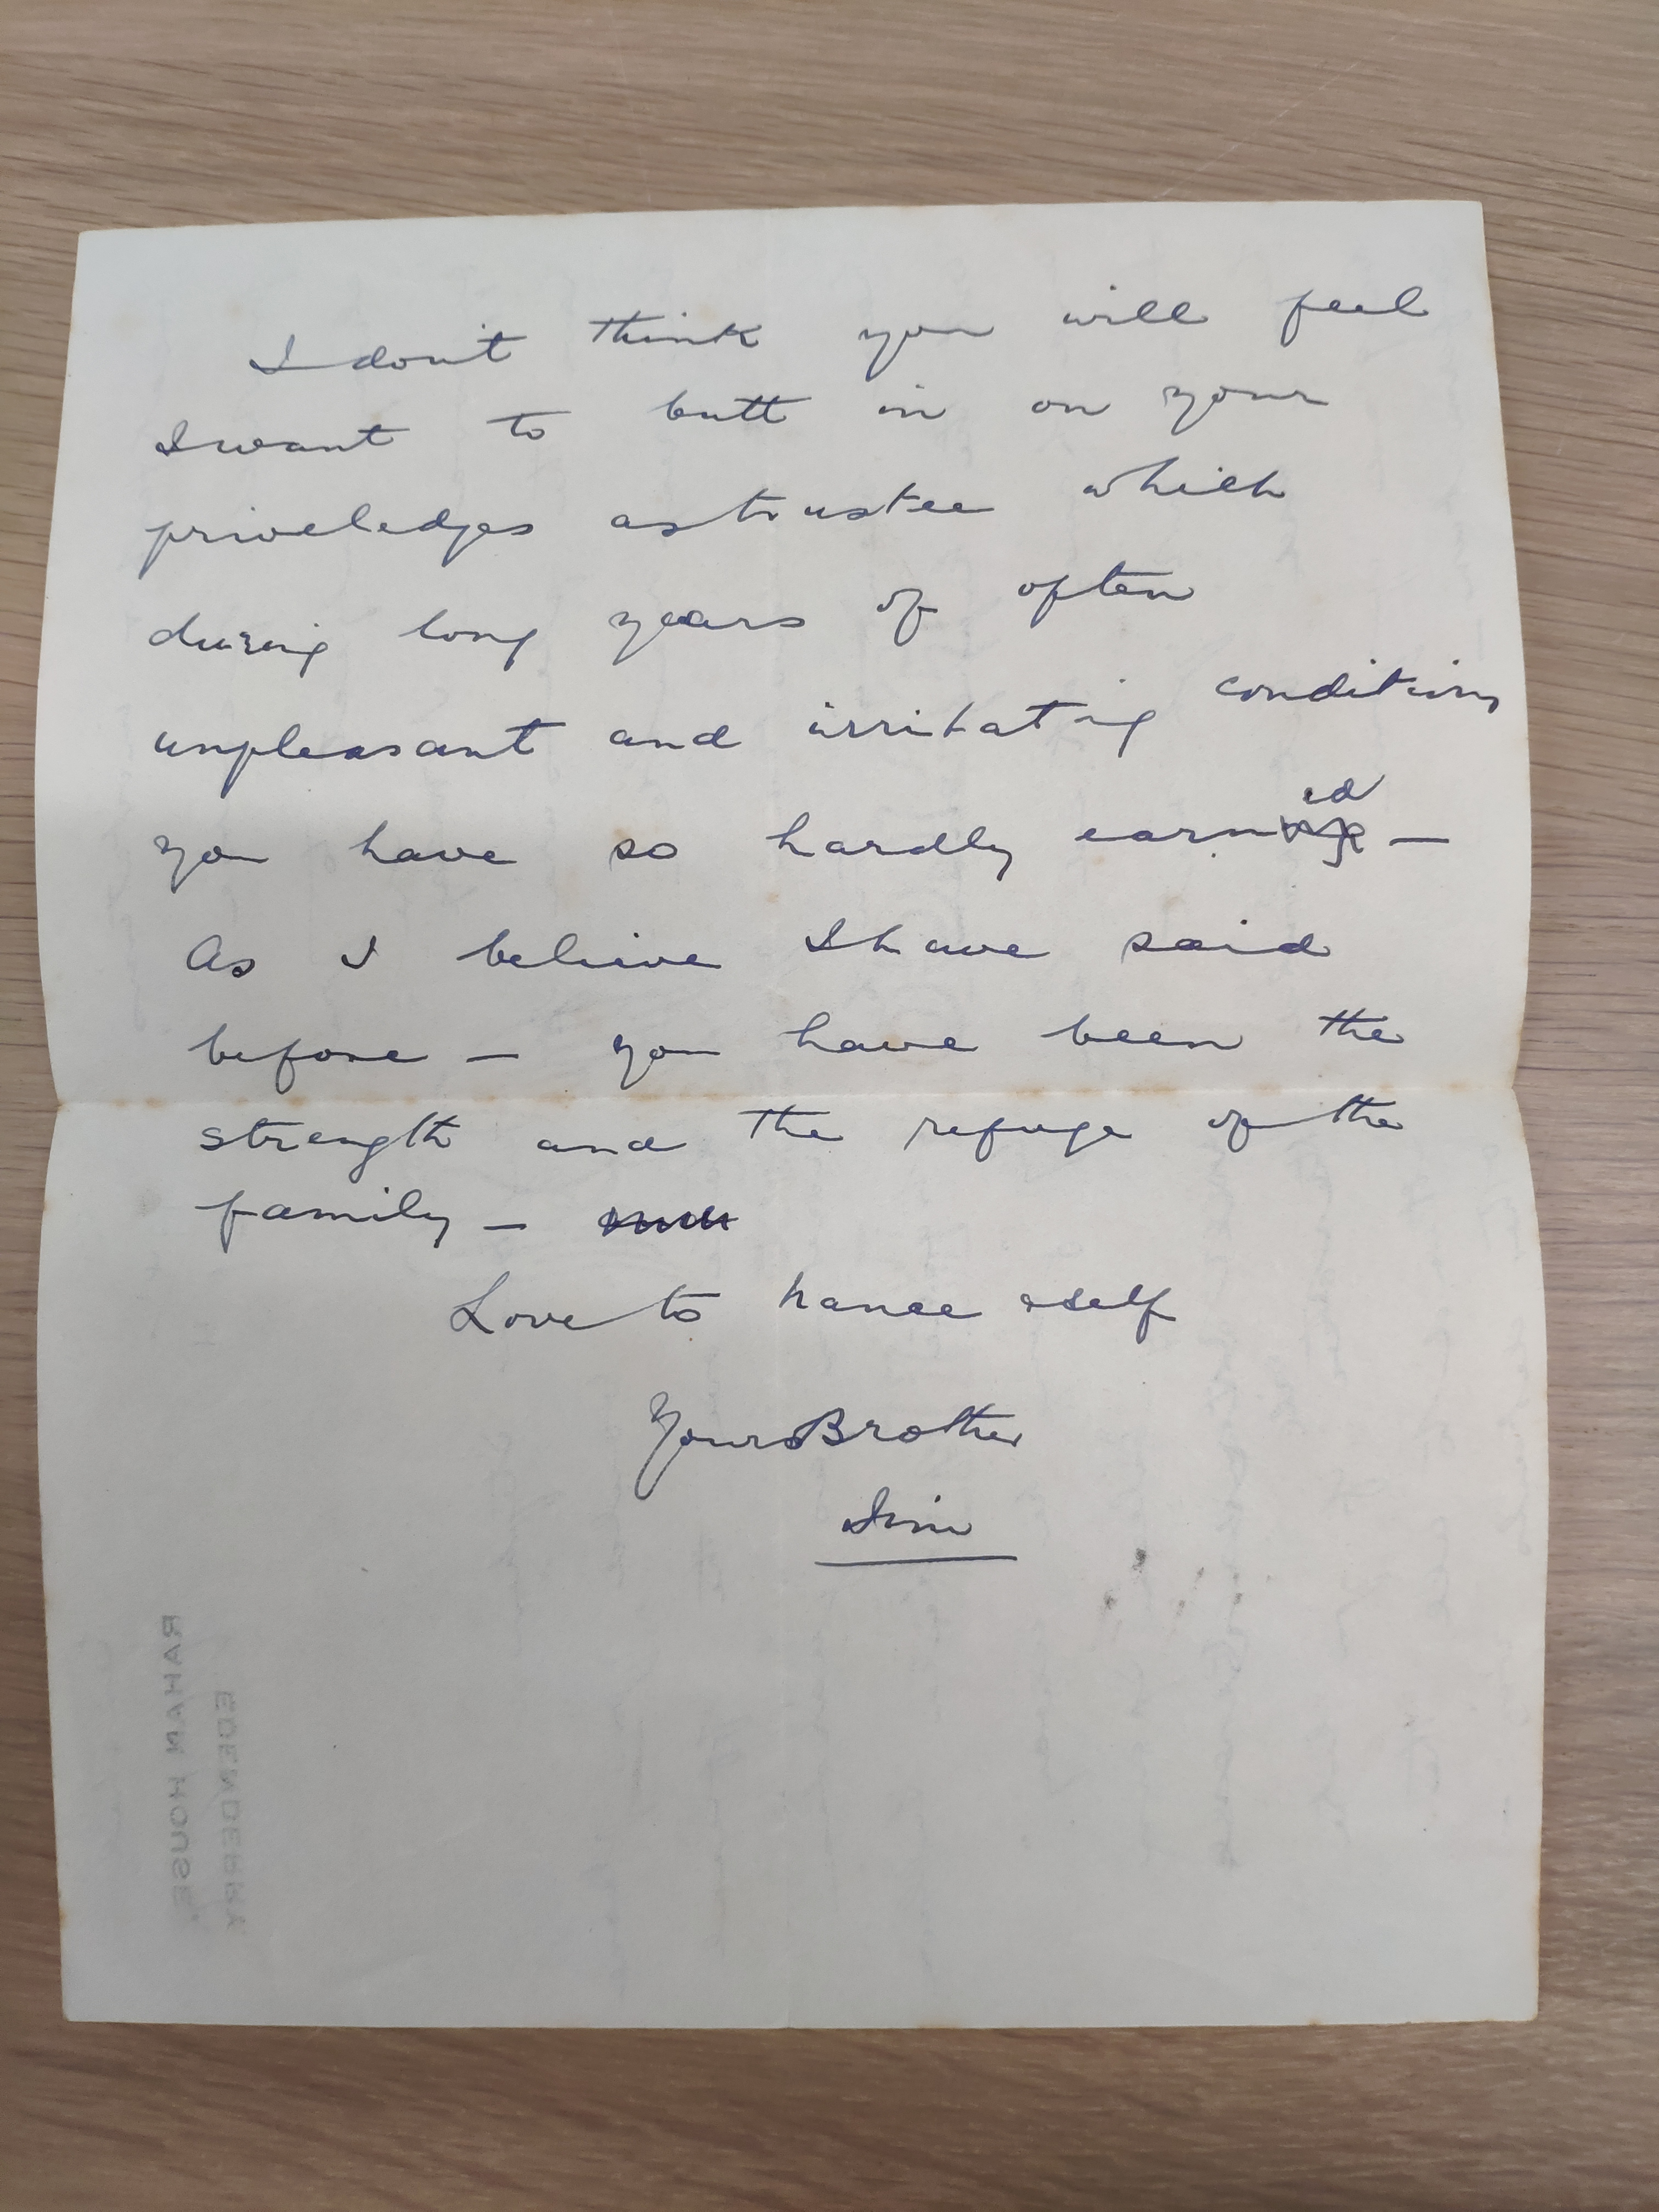 I don't think you will feel
I want to butt in on your
priveledges as trustee which
during long years of often
unpleasant and irritating conditions
you have so hardly earned —
As I believe I have said
before — you have been the
strength and the refuge of the
family —
Love to hance & self
Yours Brother
Jim
RAHAN HOUSE
EDENDERRY